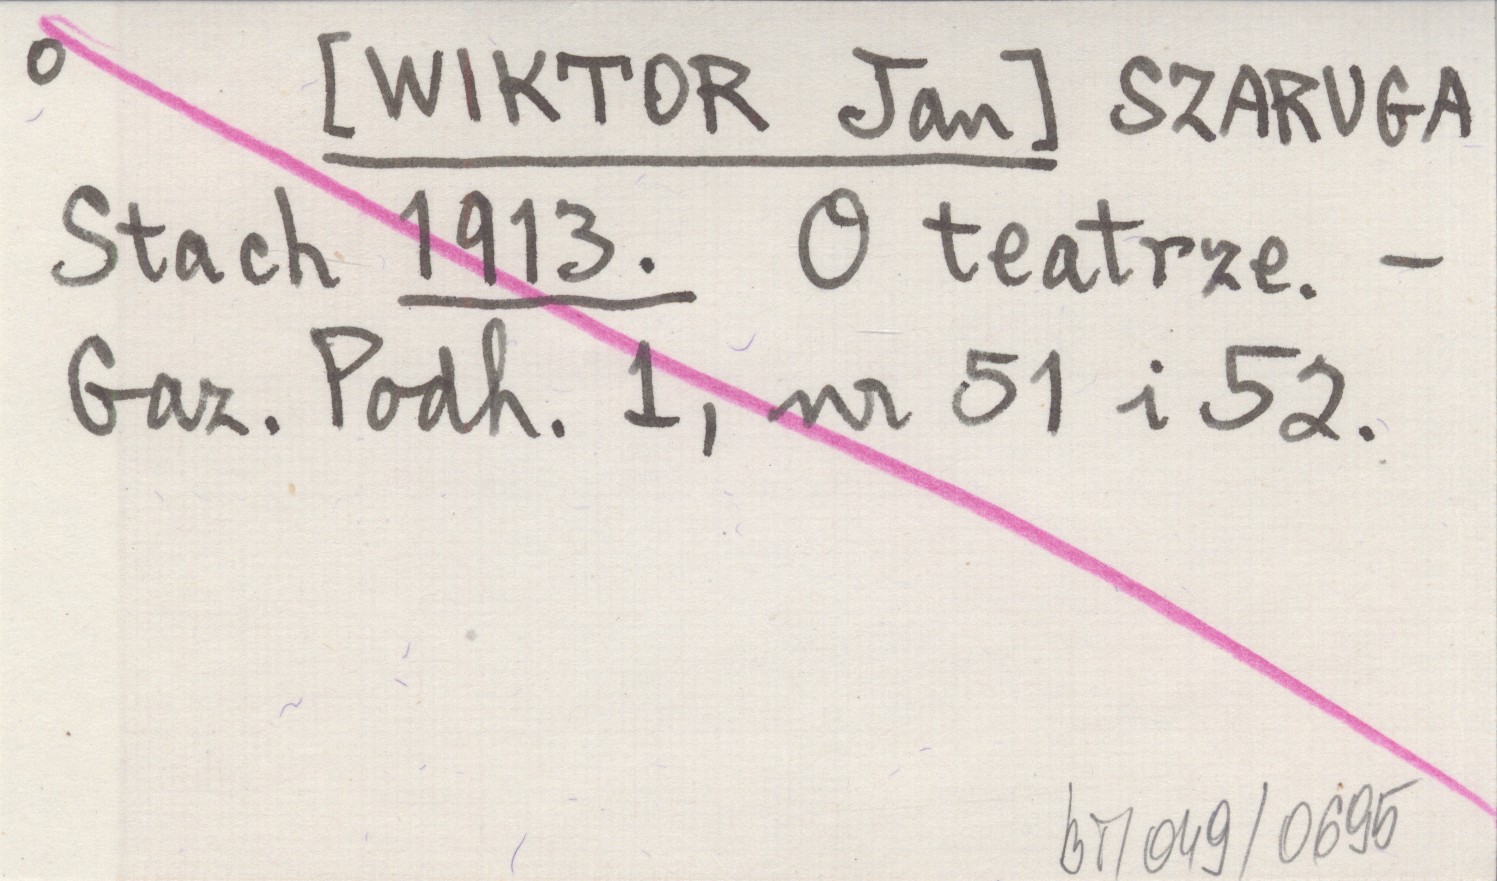 o [WIKTOR Jan] SZARUGA
Stach 1913. O teatrze. -
Gaz. Podh. 1, nr 51 i 52.
/049/0695